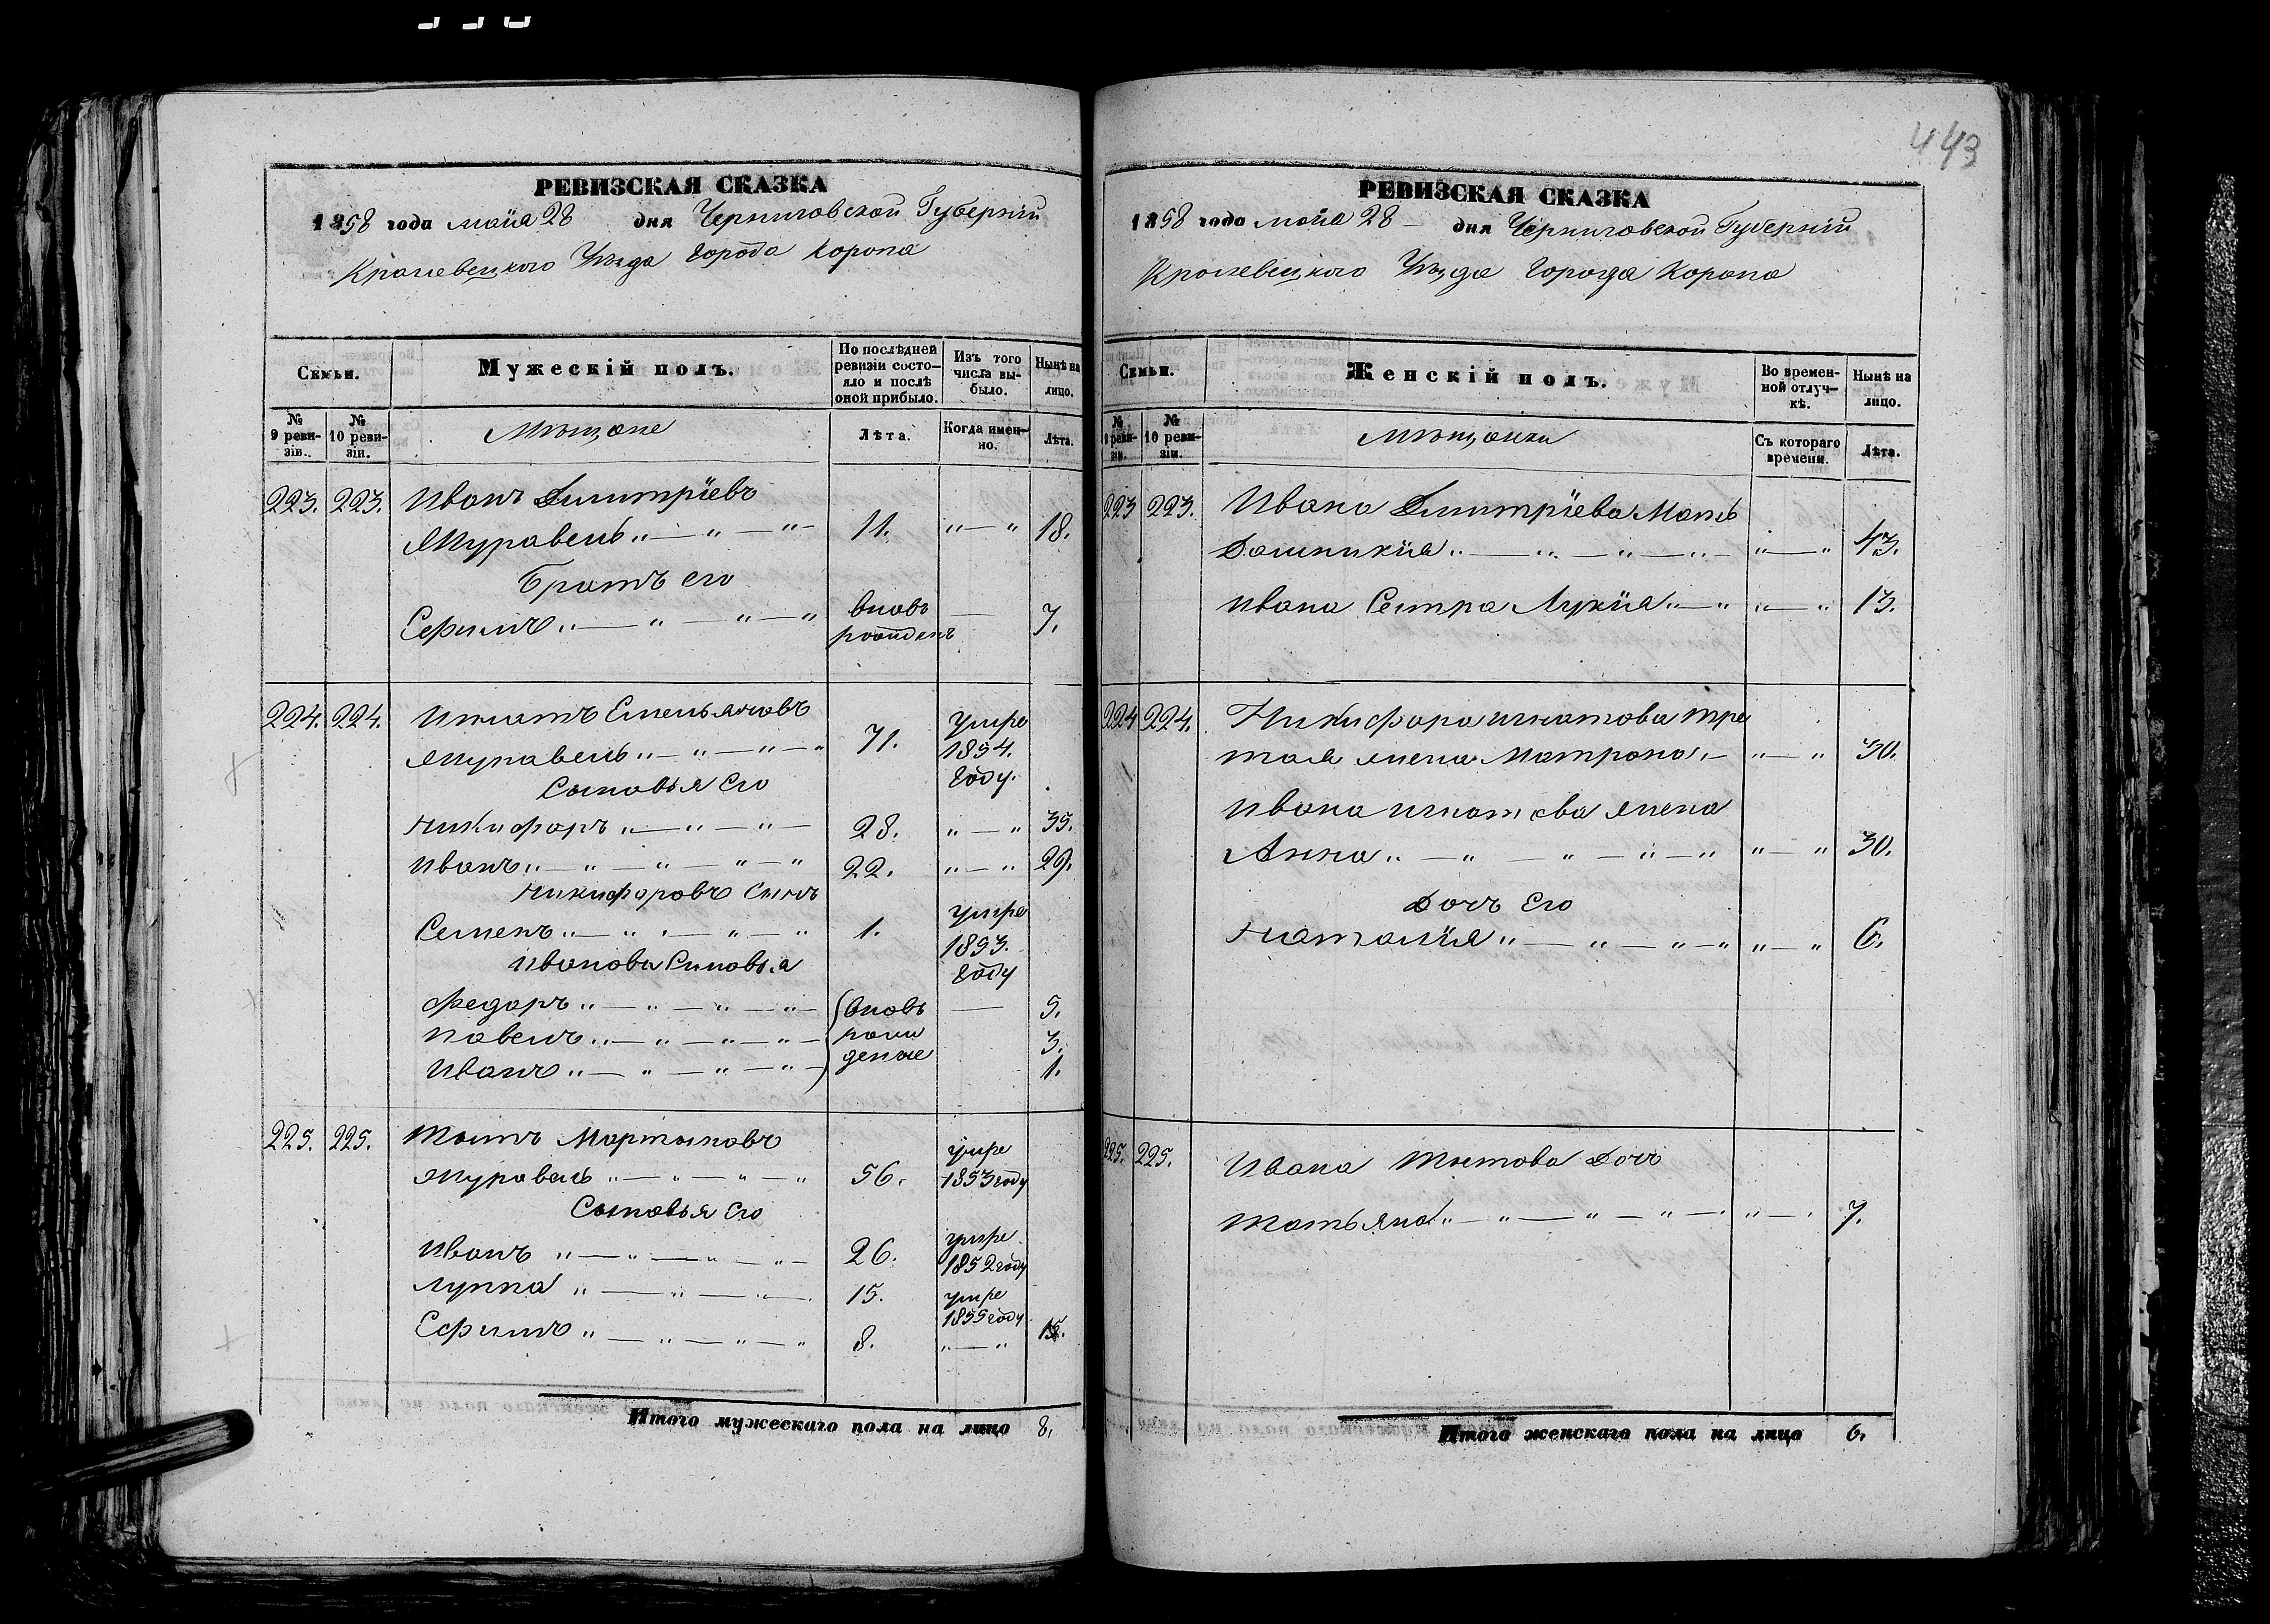 443
РЕВИЗСКАЯ СКАЗКА
1858 года маія 28 дня Черниговской Губерніи
Кролевецкого Уѣзда города Коропа
Семьи.
Мужескій полъ.
По послѣдней ревизіи состо-
яло и послѣ
оной прибыло.
Изъ того
числа вы-
было.
Нынѣ на
лицо.
№
9 реви-
зіи.
№
10 реви-
зіи.
Мѣщане
Лѣта.
Когда имен-
но.
Лѣта.
223. 223. Иванъ Дмитріевъ
Журавель „ — „ — „ — 11. „ — „ 18.
Братъ его
Ефимъ „ — „ — „ — „ вновь рожденъ — 7.
224. 224. Игнатъ Емельяновъ
Журавель „ — „ — „ — „ 71. умре 1854. году.
Сыновья его
Никифоръ „ — „ — „ — 28. „ — „ 35.
Иванъ „ — „ — „ — „ — „ 22. „ — „ 29.
Никифоровъ Сынъ
Семенъ „ — „ — „ — „ 1. умре 1853. году
Ивановы Сыновья
Федоръ „ — „ — „ — „ — вновь — 5.
Павелъ „ — „ — „ — „ — рож 3.
Иванъ „ — „ — „ — „ — денные 1.
225. 225. Титъ Мартыновъ
Журавель „ — „ — „ — „ 56. умре 1853 году
Сыновья его
Иванъ „ — „ — „ — „ — 26. умре 1852 году
Луппа „ — „ — „ — 15. умре 1855 году
Ефимъ „ — „ — „ — „ 8. „ — „ 15.
Итого мужескаго пола на лицо 8.
РЕВИЗСКАЯ СКАЗКА
1858 года маія 28 — дня Черниговской Губерніи
Кролевецкого Уѣзда города Коропа
Семьи.
Женскій полъ.
Во времен-
ной отлуч-
кѣ.
Нынѣ на
лицо.
№
9 реви-
зіи.
№
10 реви-
зіи.
Мѣщанки
Съ котораго
времени.
Лѣта.
223 223. Ивана Дмитріева Мать
Домникія „ — „ — „ — „ — „ — „ 43.
Ивана Сестра Лукія „ — „ „ — „ 13.
224 224. Никифора Игнатова тре
тая жена Матрона „ — „ — „ 30.
Ивана Игнатова жена
Анна „ — „ — „ — „ — „ „ — „ 30.
Дочь Его
Наталія „ — „ — „ — „ „ — „ 6.
225. 225. Ивана Титова Дочь
Татьяна „ — „ — „ — „ — „ — 7.
Итого женскаго пола на лицо 6.